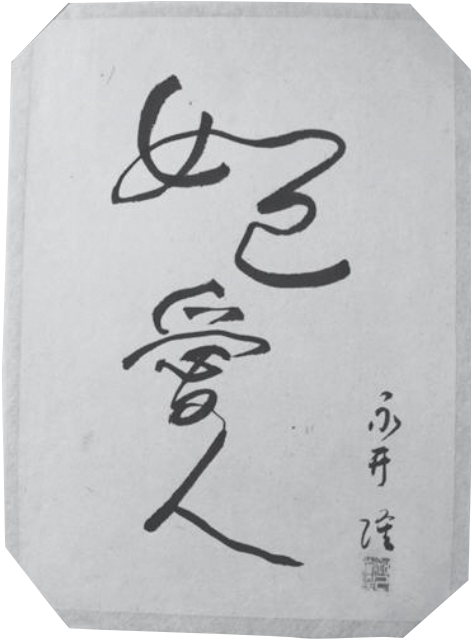 如己愛人
永井 隆